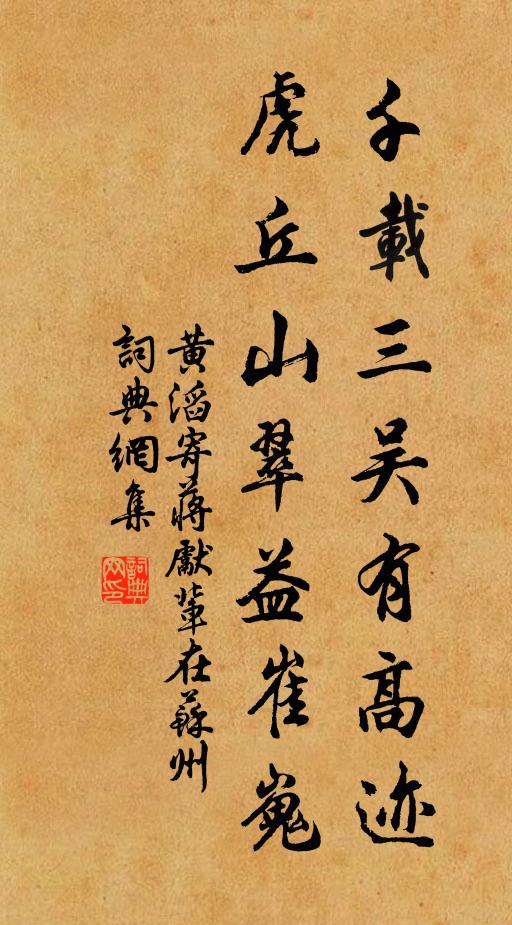 千載三吴有高迹
虎丘山翠益崔嵬
黄滔寄蔣獻輩在蘇州
詞典網集
詞典网印